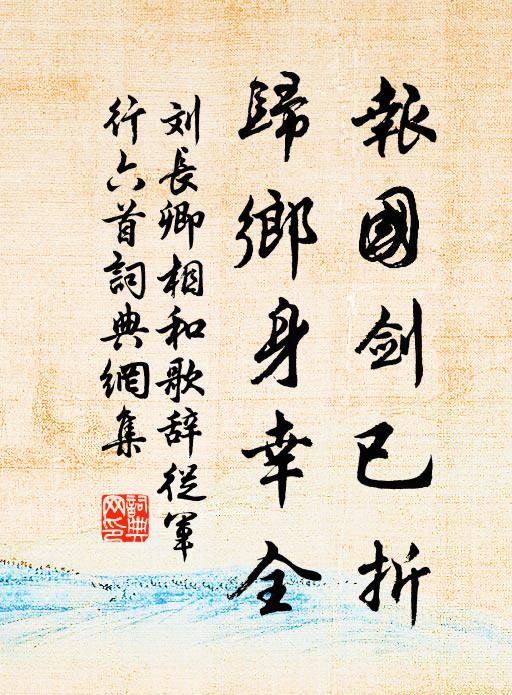 報國劍已折
歸鄉身幸全
刘長卿相和歌辞從軍
行六首詞典網集
詞典
网印